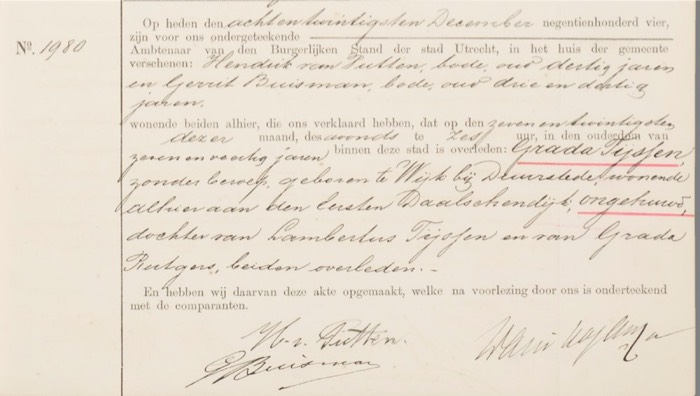 Nº. 1980
Op heden den achtentwintigsten December negentienhonderd vier,
zijn voor ons ondergeteekende
Ambtenaar van den Burgerlijken Stand der stad Utrecht, in het huis der gemeente
verschenen: Hendrik van Putten, bode, oud dertig jaren
en Gerrit Buisman, bode, oud drie en dertig
jaren.
wonende beiden alhier, die ons verklaard hebben, dat op den zeven en twintigsten
dezer maand, des avonds te zes uur, in den ouderdom van
zeven en veertig jaren, binnen deze stad is overleden: Grada Tijssen,
zonder beroep, geboren te Wijk bij Duurstede, wonende
alhier aan den Eersten Daalschendijk, ongehuwd,
dochter van Lambertus Tijssen en van Grada
Rutgers, beiden overleden. –
En hebben wij daarvan deze akte opgemaakt, welke na voorlezing door ons is onderteekend
met de comparanten.
H. v. Putten.
G Buisman